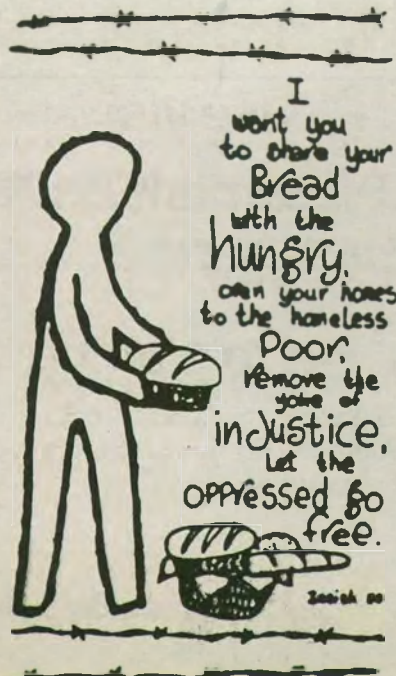 I
want you
to share your
Bread
with the
hungry,
open your homes
to the homeless
Poor,
remove the
yoke of
inJustice,
Let the
oppressed go
free.
Isaiah